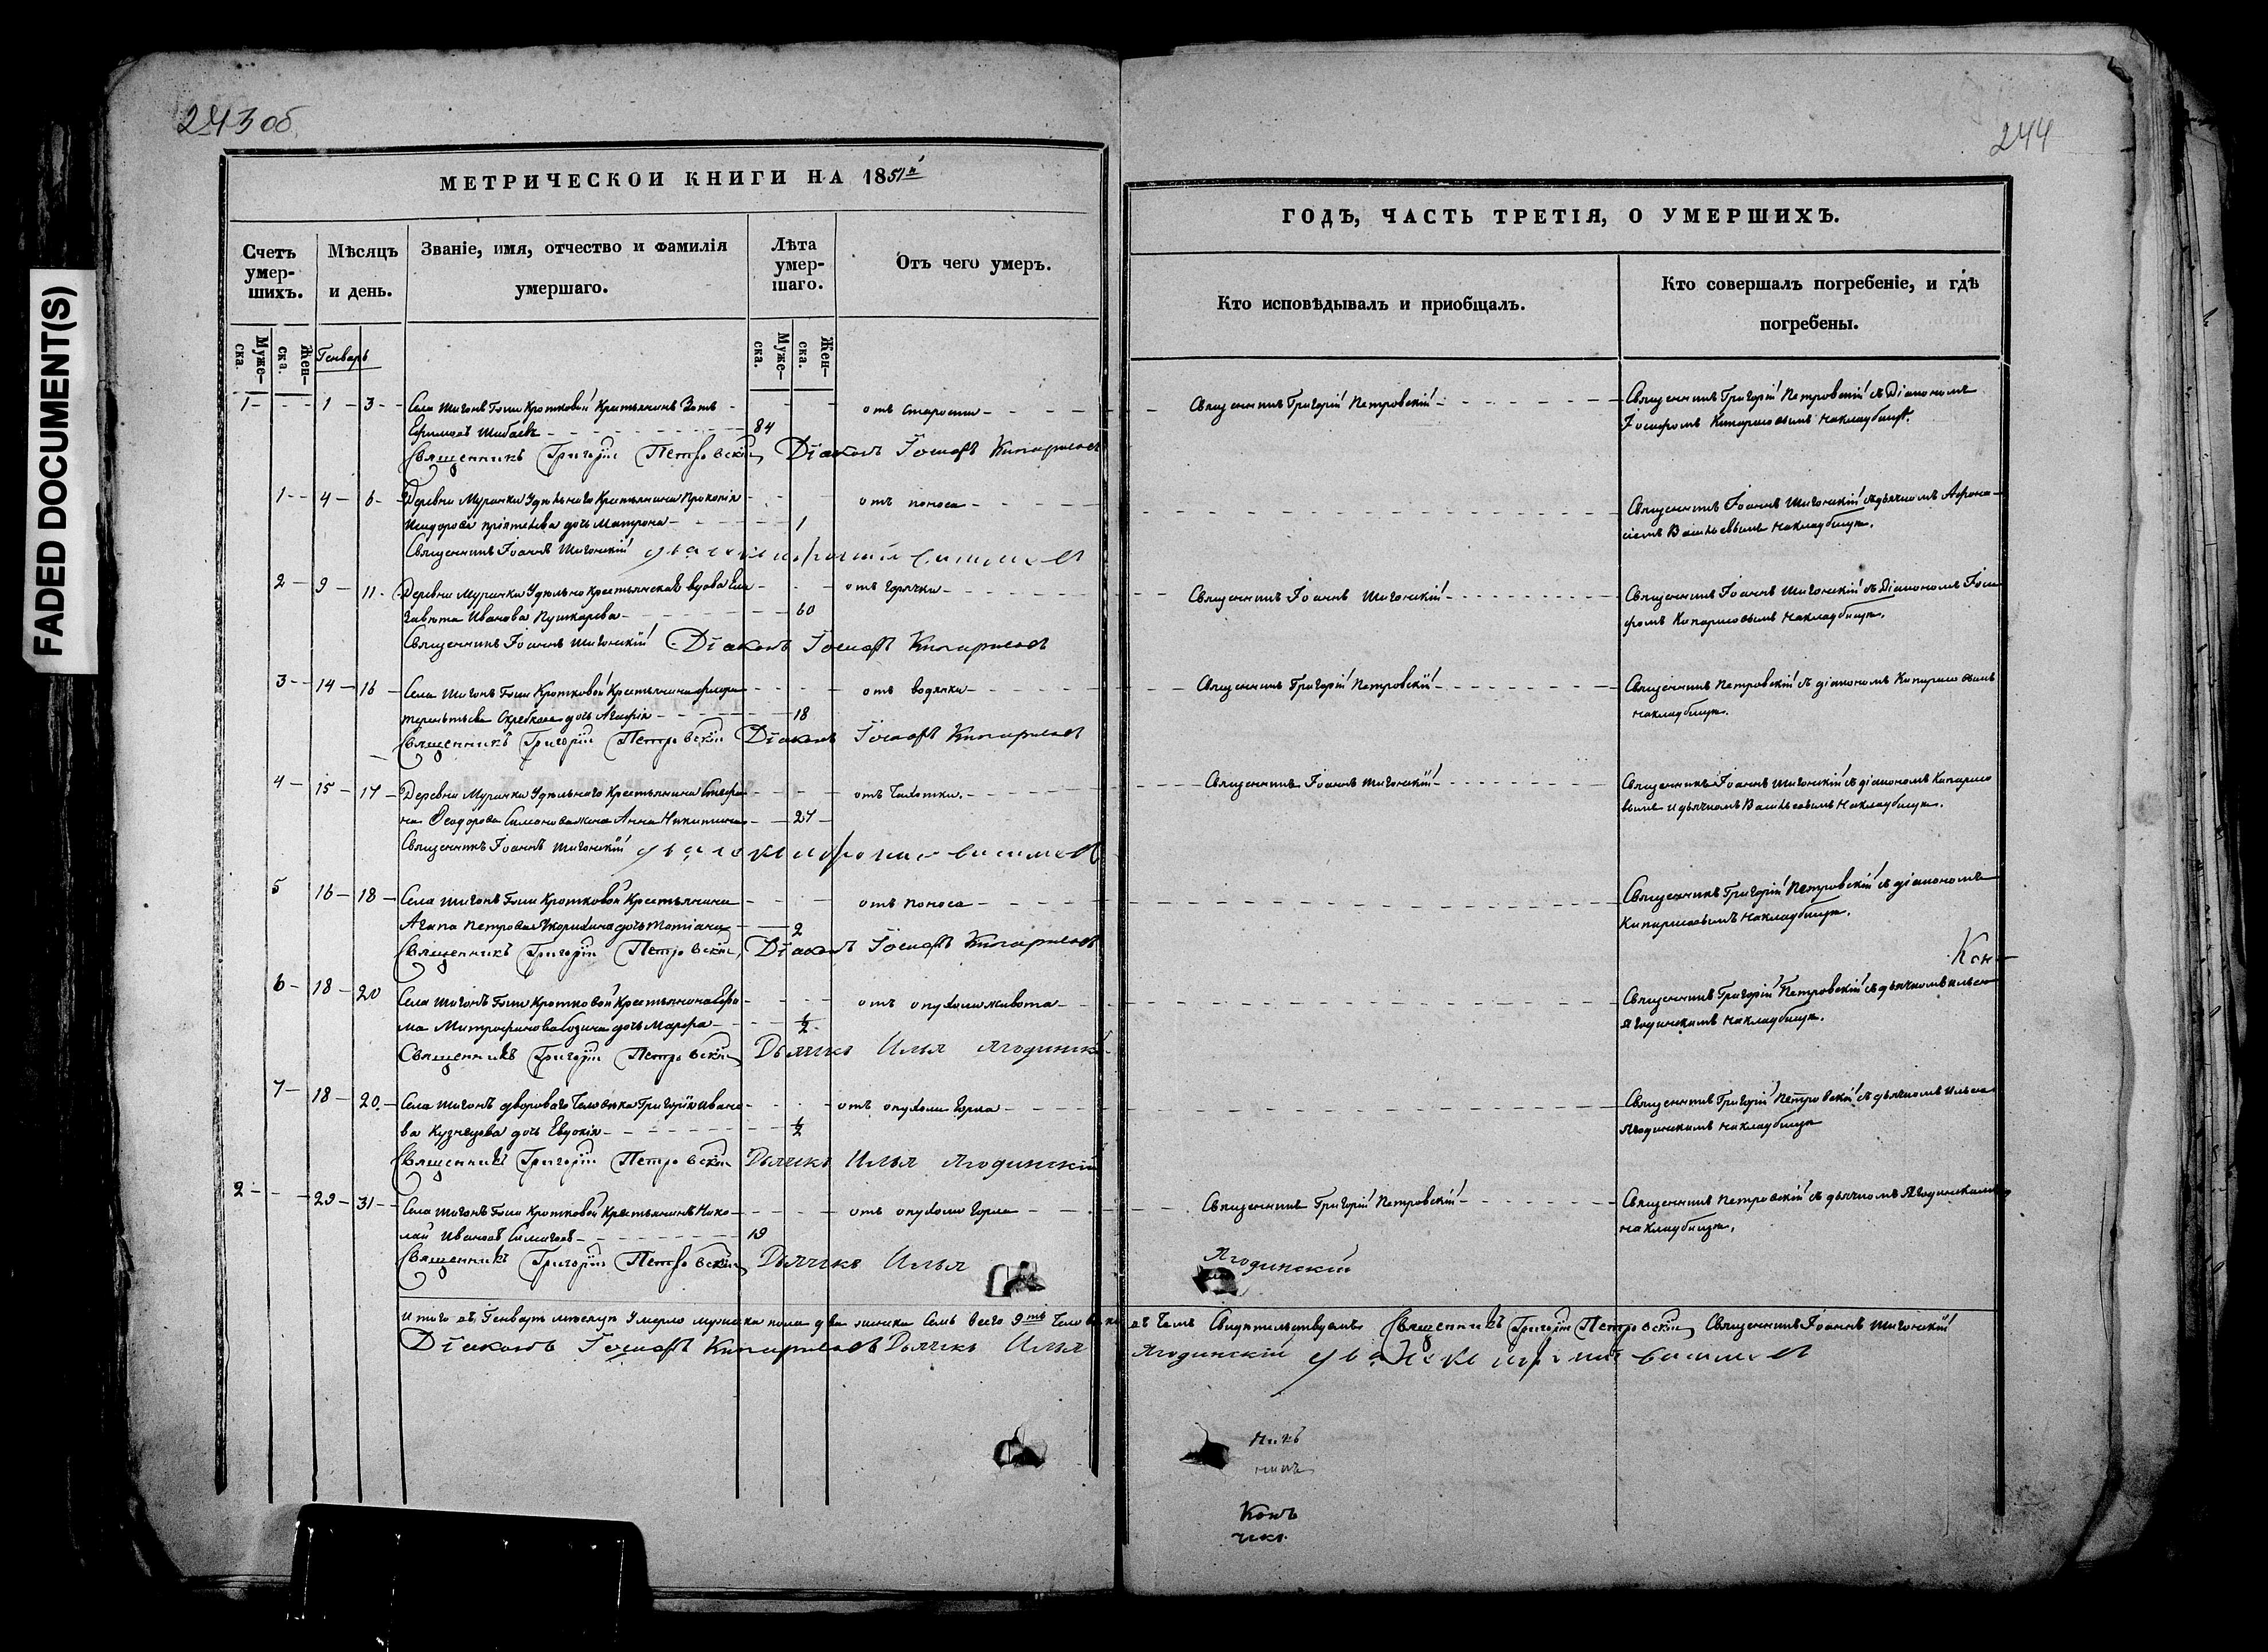 243 об
244
FADED DOCUMENT(S)
МЕТРИЧЕСКОЙ КНИГИ НА 1851й
ГОДЪ, ЧАСТЬ ТРЕТІЯ, О УМЕРШИХЪ.
Счетъ умер-шихъ.
Мѣсяцъ и день.
Званіе, имя, отчество и фамилія умершаго.
Лѣта умер-шаго.
Отъ чего умеръ.
Кто исповѣдывалъ и приобщалъ.
Кто совершалъ погребеніе, и гдѣ погребены.
Муже-ска.
Жен-ска.
Генварь
Муже-ска.
Жен-ска.
1 - - - 1 - 3 - Села Шигонъ Гжи Кротковой Крестьянинъ Зотъ - отъ старости - Священникъ Григорій Петровскій - Священникъ Григорій Петровскій съ Діакономъ
Ефимовъ Шибаевъ - 84 Іосифомъ Кипарисовымъ на кладбищѣ.
Священникъ Григорій Петровскій Діаконъ Іосифъ Кипарисовъ
1 - - 4 - 6 - Деревни Муранки Удѣльнаго Крестьянина Прокопія - отъ поноса - Священникъ Іоаннъ Шигонскій съ дьячкомъ Афона-
Исидорова дочь Матрона - 1 сіемъ Васильевымъ на кладбищѣ.
Священникъ Іоаннъ Шигонскій
2 - 9 - 11 - Деревни Муранки Удѣльная крестьянская вдова Ели - отъ горячки - Священникъ Іоаннъ Шигонскій - Священникъ Іоаннъ Шигонскій съ Діакономъ Іоси
завета Иванова Пушкарева - 60 фомъ Кипарисовымъ на кладбищѣ.
Священникъ Іоаннъ Шигонскій Діаконъ Іосифъ Кипарисовъ
3 - 14 - 16 - Села Шигонъ Гжи Кротковой Крестьянина - отъ водянки - Священникъ Григорій Петровскій - Священникъ Петровскій съ діакономъ Кипарисовымъ
дочь Агафія - 18 на кладбищѣ.
Священникъ Григорій Петровскій Діаконъ Іосифъ Кипарисовъ
4 - 15 - 17 - Деревни Муранки Удѣльнаго Крестьянина Стефа - отъ чахотки. - Священникъ Іоаннъ Шигонскій - Священникъ Іоаннъ Шигонскій съ діакономъ Кипарисо
на Ѳеодорова жена Анна Никитина - 27 - вымъ и дьячкомъ Васильевымъ на кладбищѣ.
Священникъ Іоаннъ Шигонскій
5 16 - 18 - Села Шигонъ Гжи Кротковой Крестьянина - отъ поноса - Священникъ Григорій Петровскій съ діакономъ
Агапа Петрова дочь Татіана - 2 Кипарисовымъ на кладбищѣ.
Священникъ Григорій Петровскій Діаконъ Іосифъ Кипарисовъ
Кон-
6 - 18 - 20 Села Шигонъ Гжи Кротковой Крестьянина Ефи - отъ опухоли живота - Священникъ Григорій Петровскій съ дьячкомъ Ильею
ма Митрофанова дочь Марфа - 1/2 Ягодинскимъ на кладбищѣ.
Священникъ Григорій Петровскій Дьячекъ Илья Ягодинскій
7 - 18 - 20 - Села Шигонъ двороваго человѣка Григорія Ивано - отъ опухоли горла - Священникъ Григорій Петровскій съ дьячкомъ Ильею
ва Кузнецова дочь Евдокія - 1/2 Ягодинскимъ на кладбищѣ
Священникъ Григорій Петровскій Дьячекъ Илья Ягодинскій
2 - - - 29 - 31 - Села Шигонъ Гжи Кротковой Крестьянинъ Нико - отъ опухоли горла - Священникъ Григорій Петровскій - Священникъ Петровскій съ дьячкомъ Ягодинскимъ
лай Ивановъ - 19 на кладбищѣ.
Священникъ Григорій Петровскій Дьячекъ Илья Ягодинскій
Итого въ Генварѣ мѣсяцѣ умерло мужеска пола два женска семь всего 9ть человѣкъ въ чемъ свидѣтельствуемъ Священникъ Григорій Петровскій Священникъ Іоаннъ Шигонскій
Діаконъ Іосифъ Кипарисовъ Дьячекъ Илья Ягодинскій